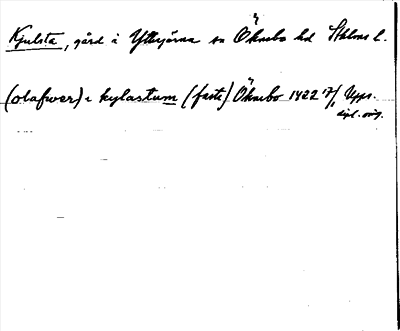 Kjulsta, gård i Ytterjärna sn Öknebo hd Sthlms l.
(olafwer) i kylastum (faste) Öknebo 1422 17/1 Upps.
dipl. orig.